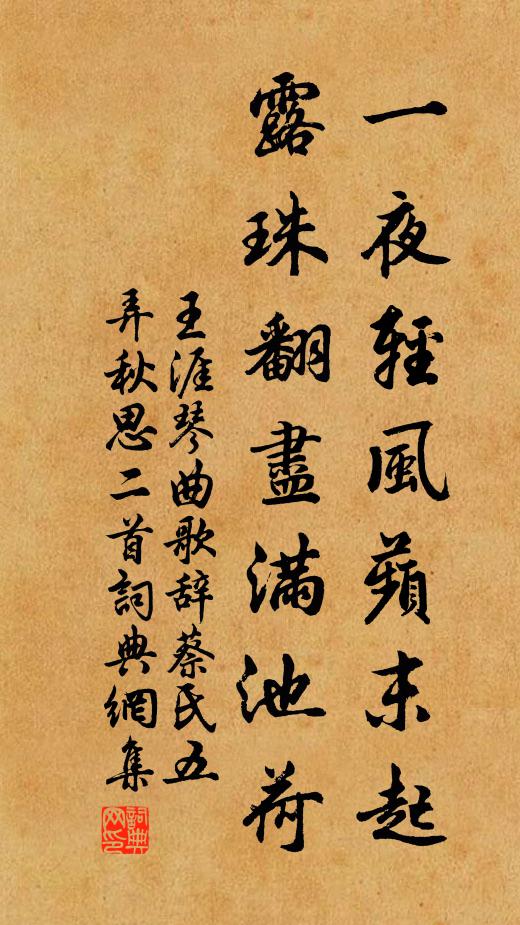 一夜輕風蘋末起
露珠翻盡滿池荷
王涯琴曲歌辞蔡氏五
弄秋思二首詞典網集
詞典
网印